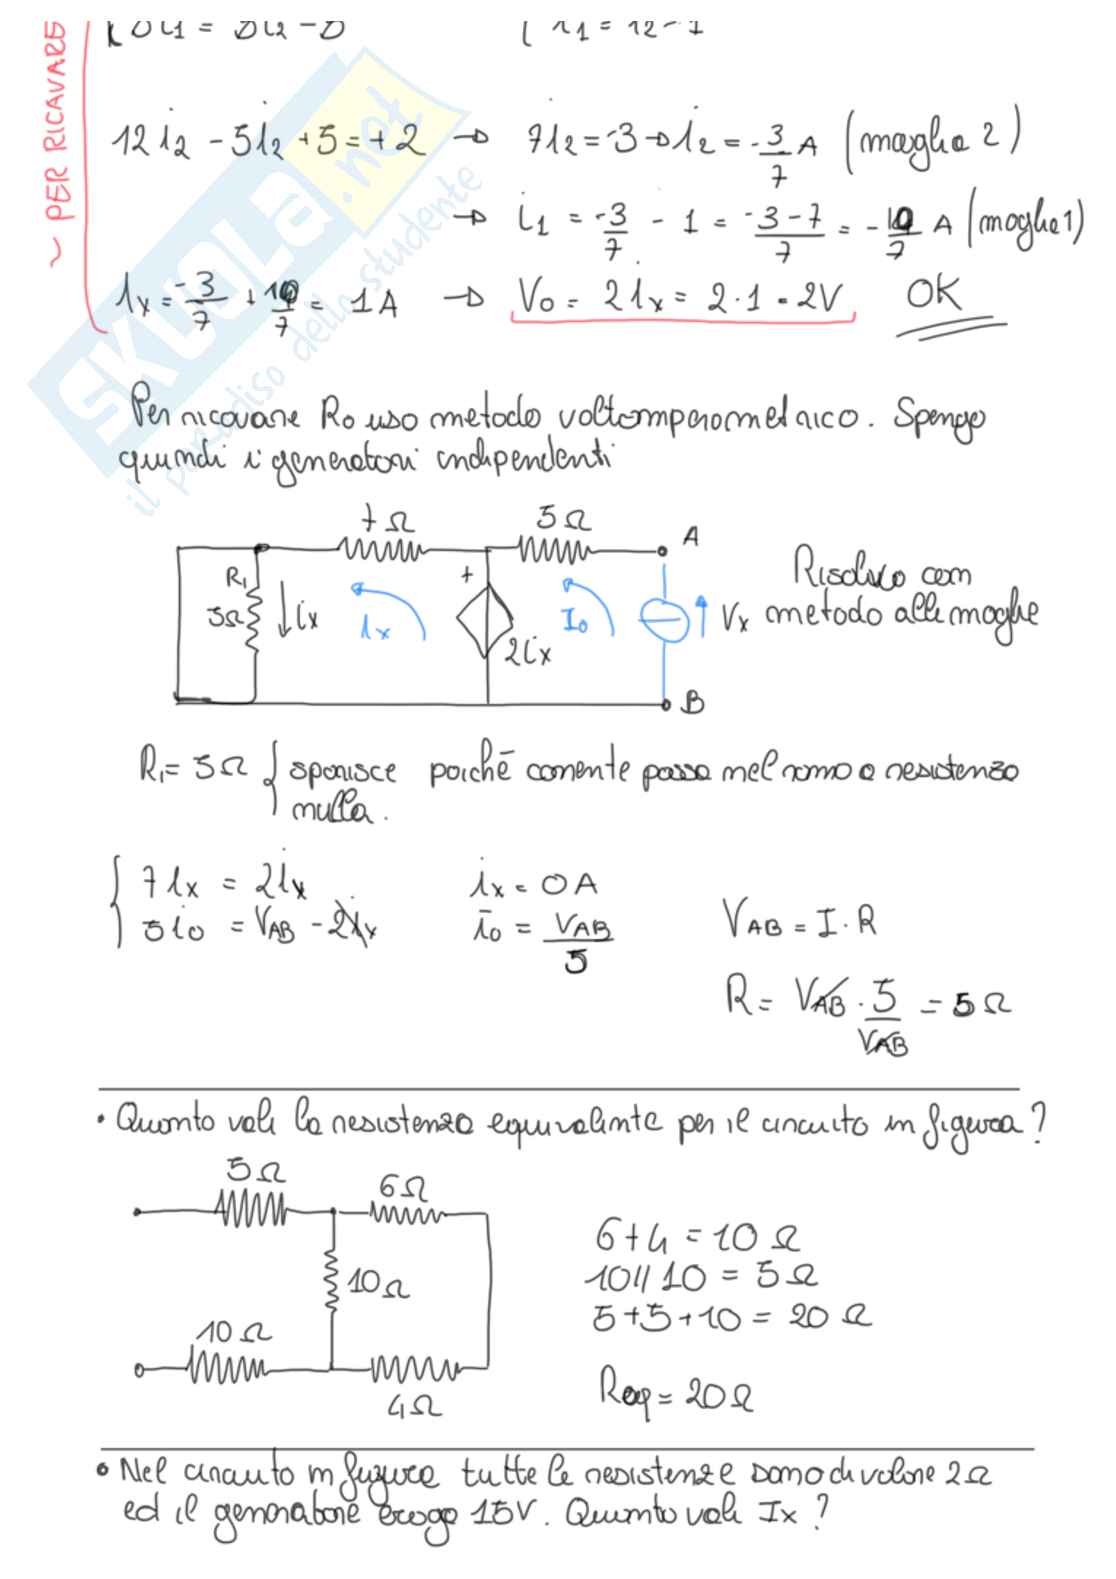 ~ PER RICAVARE
12 i2 - 5i2 + 5 = +2 → 7i2 = -3 → i2 = -3/7 A (maglia 2)
→ i1 = -3/7 - 1 = -3-7/7 = -10/7 A (maglia 1)
ix = -3/7 + 10/7 = 1A → Vo = 2ix = 2·1 = 2V OK
SKUOLA.net
il paradiso dello studente
Per ricavare Ro uso metodo voltamperometrico. Spengo
quindi i generatori indipendenti
7Ω 5Ω A
R1 5Ω ix ix + 2ix Io Vx
B
Risolvo con
metodo alle maglie
R1 = 5Ω { sparisce poiché corrente passa nel ramo a resistenza
nulla.
7ix = 2ix ix = 0A
5io = VAB - 2ix io = VAB/5 VAB = I·R
R = VAB · 5/VAB = 5Ω
• Quanto vale la resistenza equivalente per il circuito in figura?
5Ω 6Ω
10Ω
10Ω 4Ω
6+4 = 10 Ω
10//10 = 5Ω
5+5+10 = 20 Ω
Req = 20Ω
• Nel circuito in figura tutte le resistenze sono di valore 2Ω
ed il generatore eroga 15V. Quanto vale Ix?